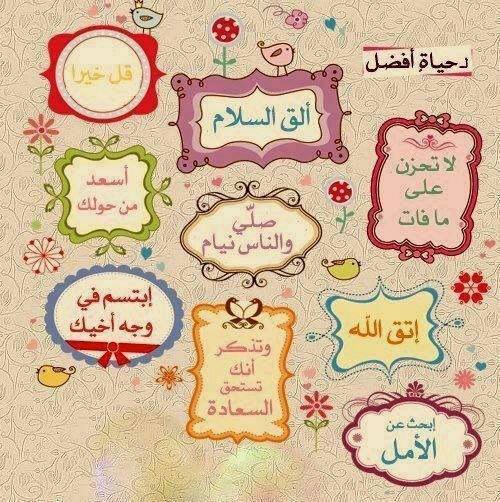 لحياة أفضل
قل خيرا
ألق السلام
لا تحزن
على
ما فات
أسعد
من حولك
صلّي
والناس نيام
إبتسم في
وجه أخيك
إتق الله
وتذكر
أنك
تستحق
السعادة
إبحث عن
الأمل